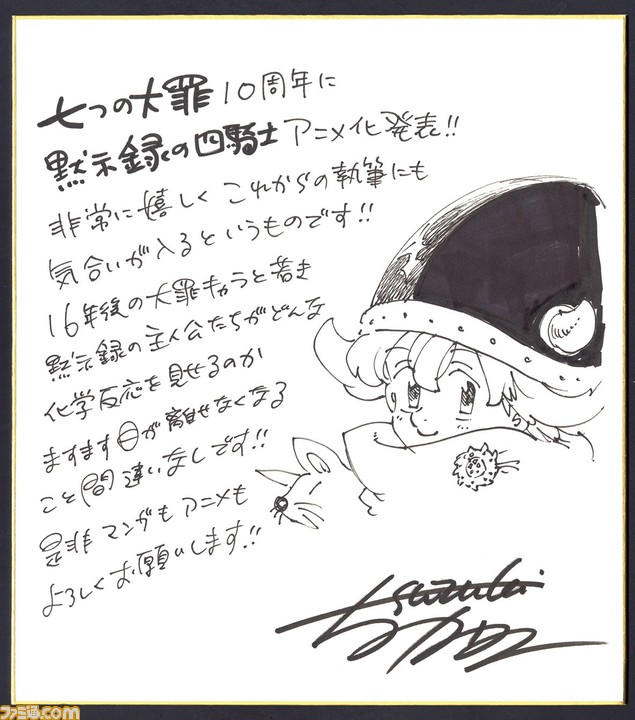 七つの大罪10周年に
黙示録の四騎士アニメ化発表!!
非常に嬉しくこれからの執筆にも
気合いが入るというものです!!
16年後の大罪キャラと若き
黙示録の主人公たちがどんな
化学反応を見せるのか
ますます目が離せなくなる
こと間違いなしです!!
是非マンガもアニメも
よろしくお願いします!!
suzuki
ファミ通.com